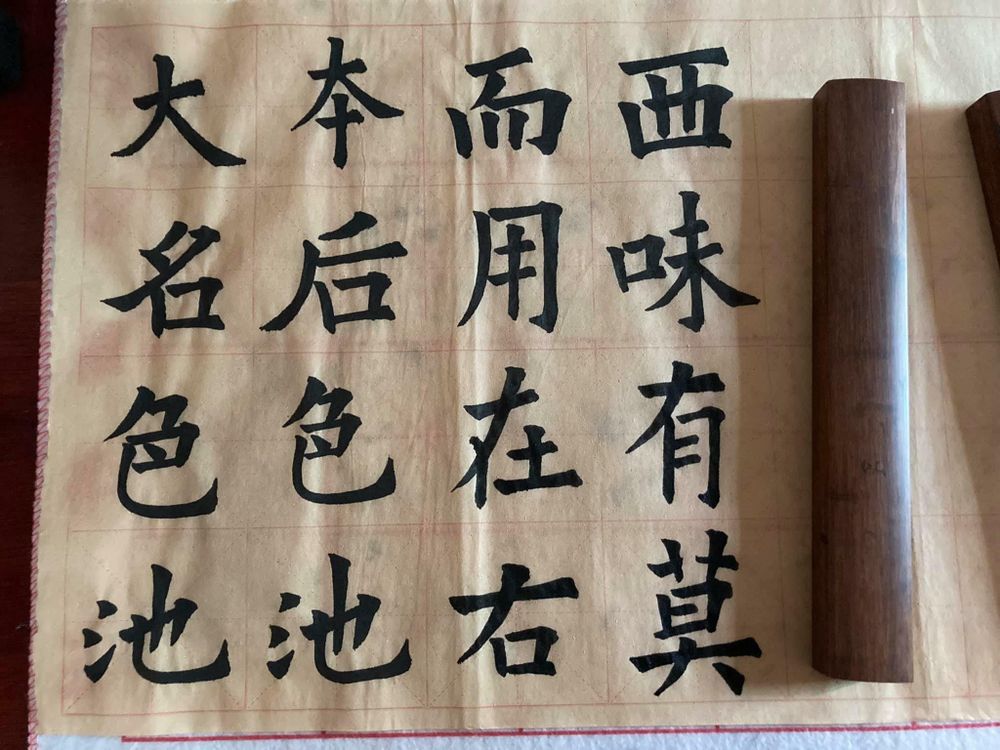 西味有莫
而用在右
本后色池
大名色池